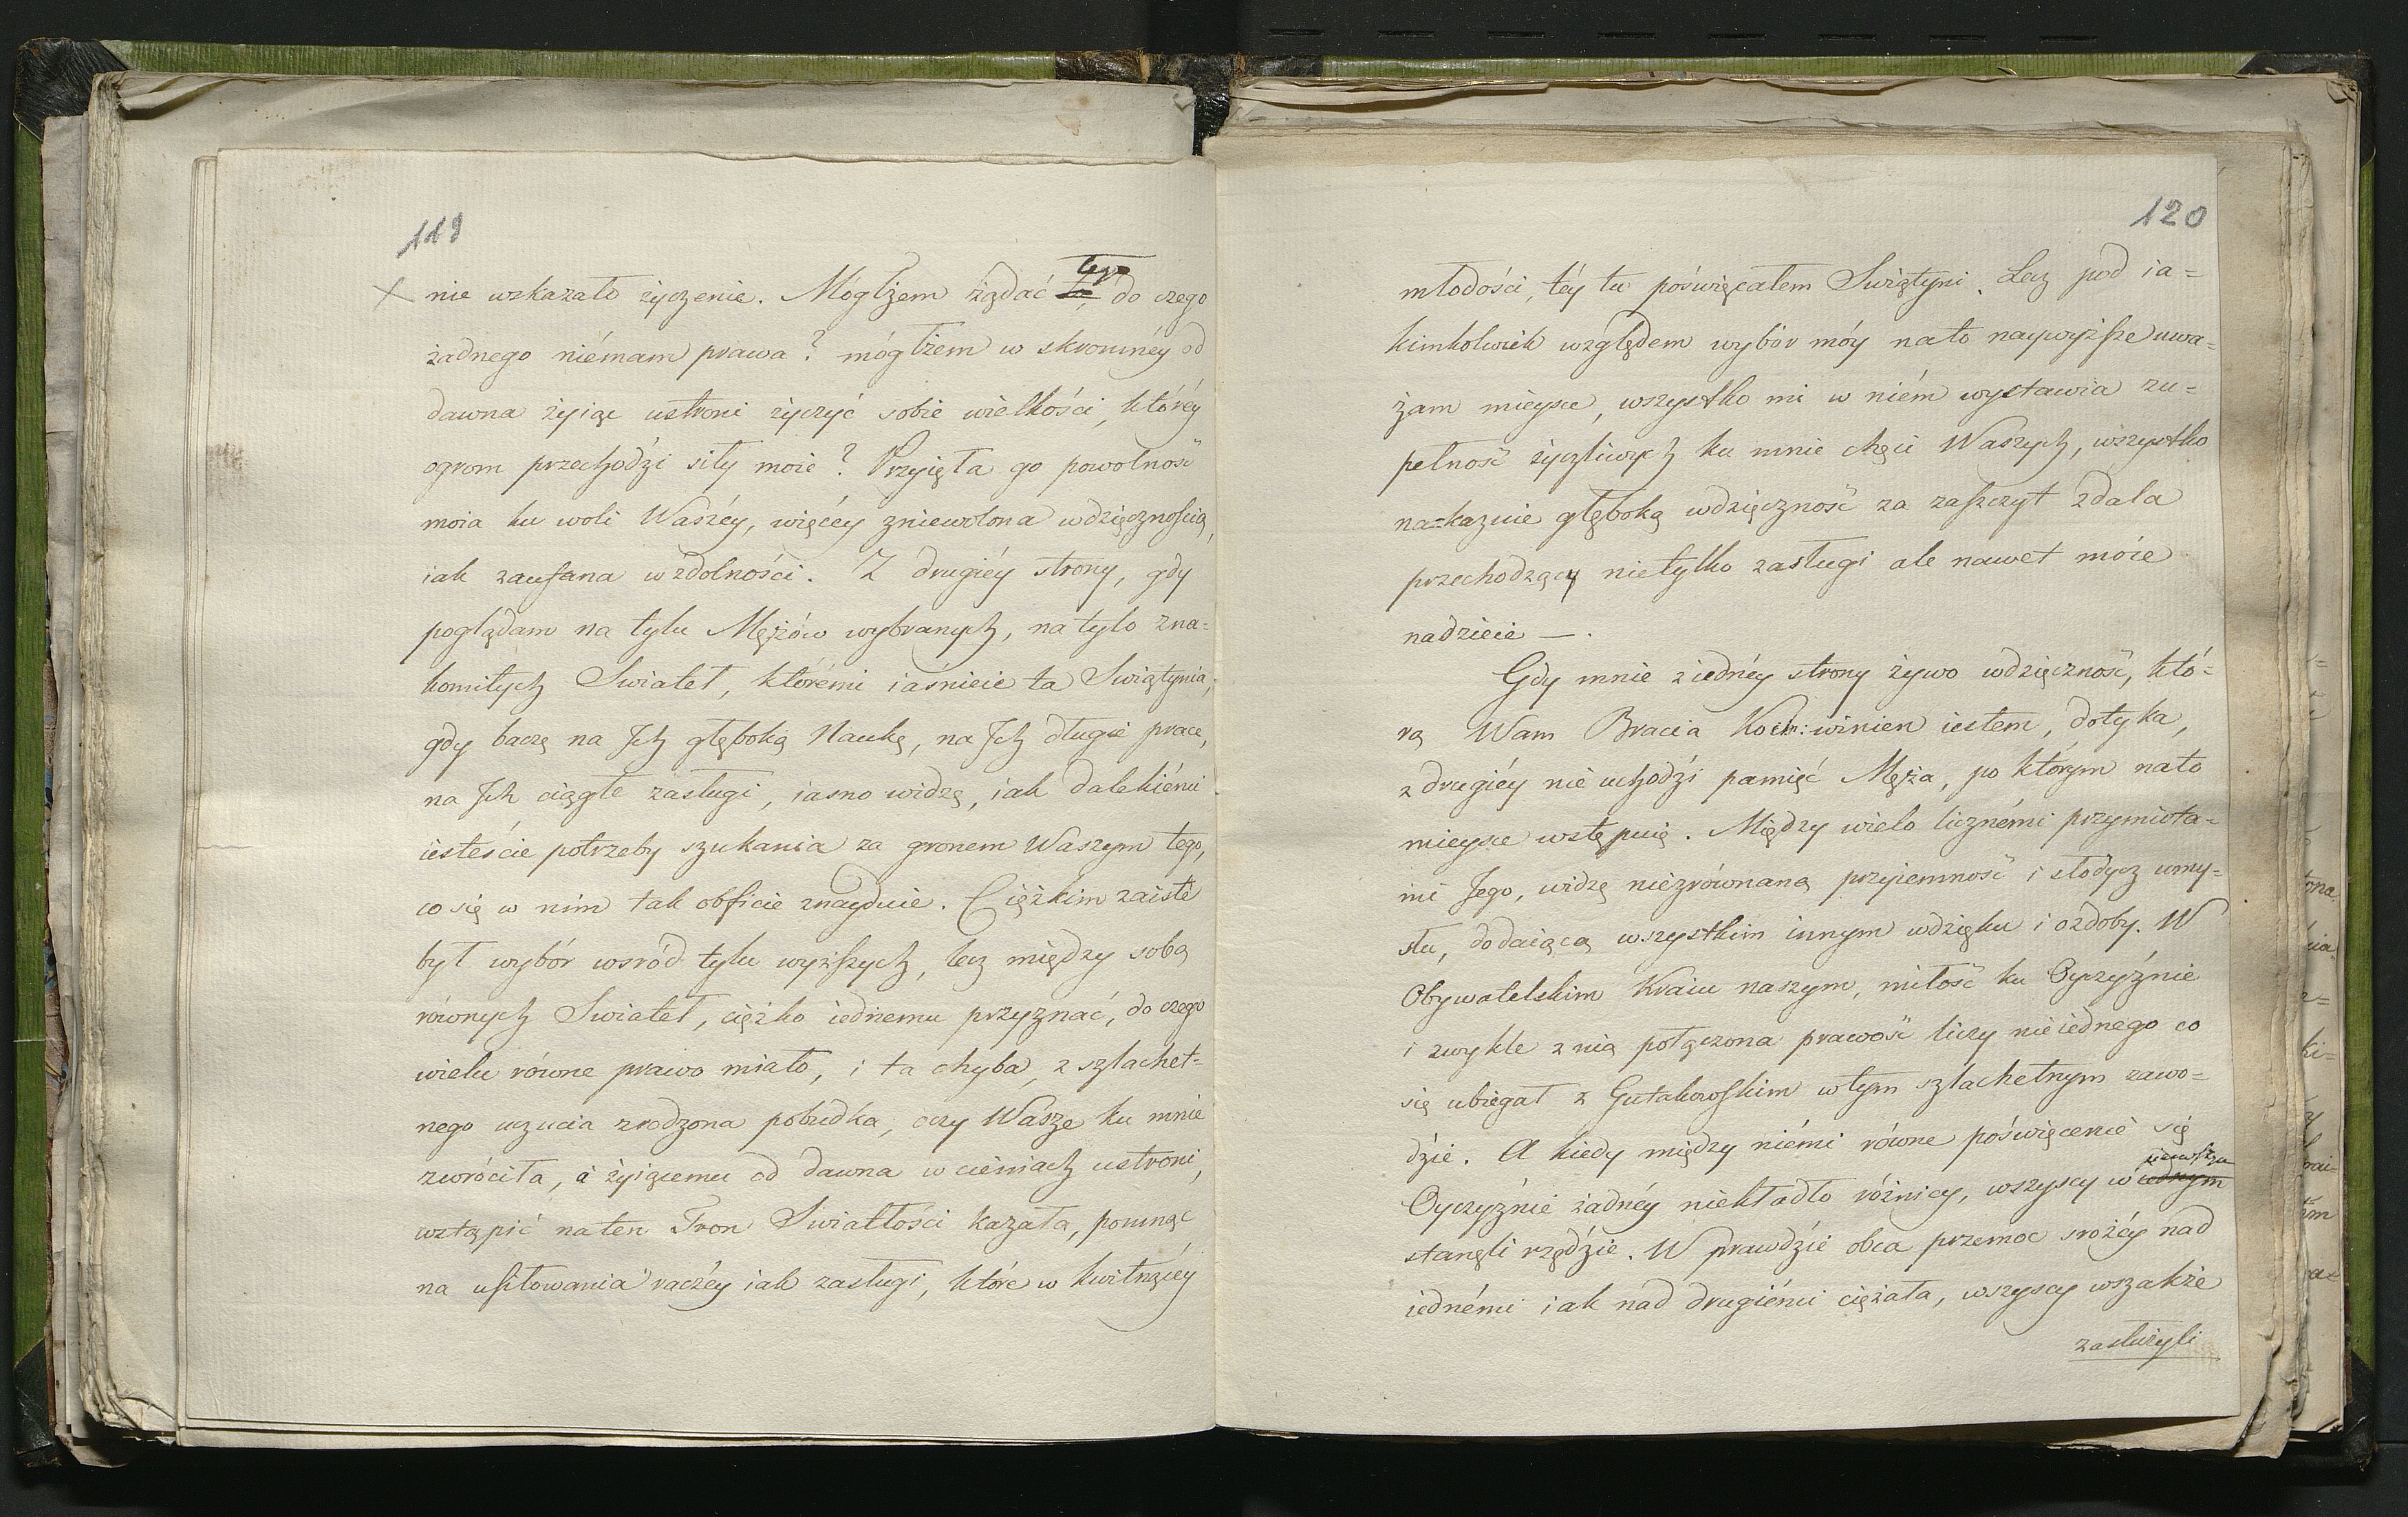 119
nie wskazało życzenie. Mógłżem żądać tego do czego
żadnego niémam prawa? mógłżem w skromnéy od
dawna żyiąc ustroni życzyć sobie wielkości, któréy
ogrom przechodzi siły moie? Przyięła go powolność
moia ku woli Waszéy, więcéy zniewolona wdzięcznością,
iak zaufana w zdolności. Z drugiéy strony, gdy
poglądam na tylu Mężów wybranych, na tylo zna=
komitych Swiateł, którémi iaśnieie ta Swiątynia,
gdy baczę na Jch głęboką Naukę, na Jch długie prace,
na Jch ciągłe zasługi, iasno widzę, iak dalekiémi
iesteście potrzeby szukania za gronem Waszym tego,
co się w nim tak obficie znayduie. Ciężkim zaiste
był wybór wsród tylu wyższych, lecz między sobą
równych Swiateł, ciężko iednemu przyznać, do czego
wielu równe prawo miało, i ta chyba, z szlachet=
nego uczucia zrodzona pobudka, oczy Wasze ku mnie
zwróciła, a żyiącemu od dawna w cieniach ustroni,
wstąpić na ten Tron Swiatłości kazała, pomnąc
na usiłowania raczéy iak zasługi, które w kwitnącéy
120
młodości, téy tu poświęcałem Swiątyni. Lecz pod ia=
kimkolwiek względem wybór móy na to naywyższe uwa=
żam mieysce, wszystko mi w niém wystawia zu=
pełność życzliwych ku mnie chęci Waszych, wszystko
nakazuie głęboką wdzięczność za zaszczyt zdala
przechodzący nietylko zasługi ale nawet moie
nadzieie —.
Gdy mnie z iednéy strony żywo wdzięczność, któ=
rą Wam Bracia Koch: winien iestem, dotyka,
z drugiéy nie uchodzi pamięć Męża, po którym na to
mieysce wstępuię. Między wielo licznémi przymiota=
mi Jego, widzę niezrównaną przyiemność i słodycz umy=
słu, dodaiącą wszystkim innym wdzięku i ozdoby. W
Obywatelskim Kraiu naszym, miłość ku Oyczyźnie
i zwykle z nią połączona prawość liczy nieiednego co
się ubiegał z Gutakowskim w tym szlachetnym zawo=
dzie. A kiedy między niémi równe poświęcenie się
Oyczyźnie żadnéy niekładło różnicy, wszyscy w pierwszym iednym
stanęli rzędzie. W prawdzie obca przemoc srożéy nad
iednémi iak nad drugiémi ciężała, wszyscy wszakże
zasłużyli